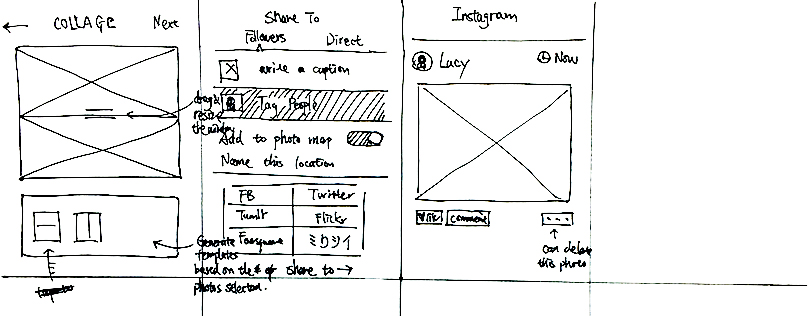 COLLAGE Next
drag &
resize
the window
Generate
templates
based on the # of
photos selected.
Share To
Followers Direct
write a caption
Tag People
Add to photo map
Name this location
FB Twitter
Tumlr Flickr
Foursquare ミクシイ
share to →
Instagram
Lucy Now
like comment ...
can delete
this photo